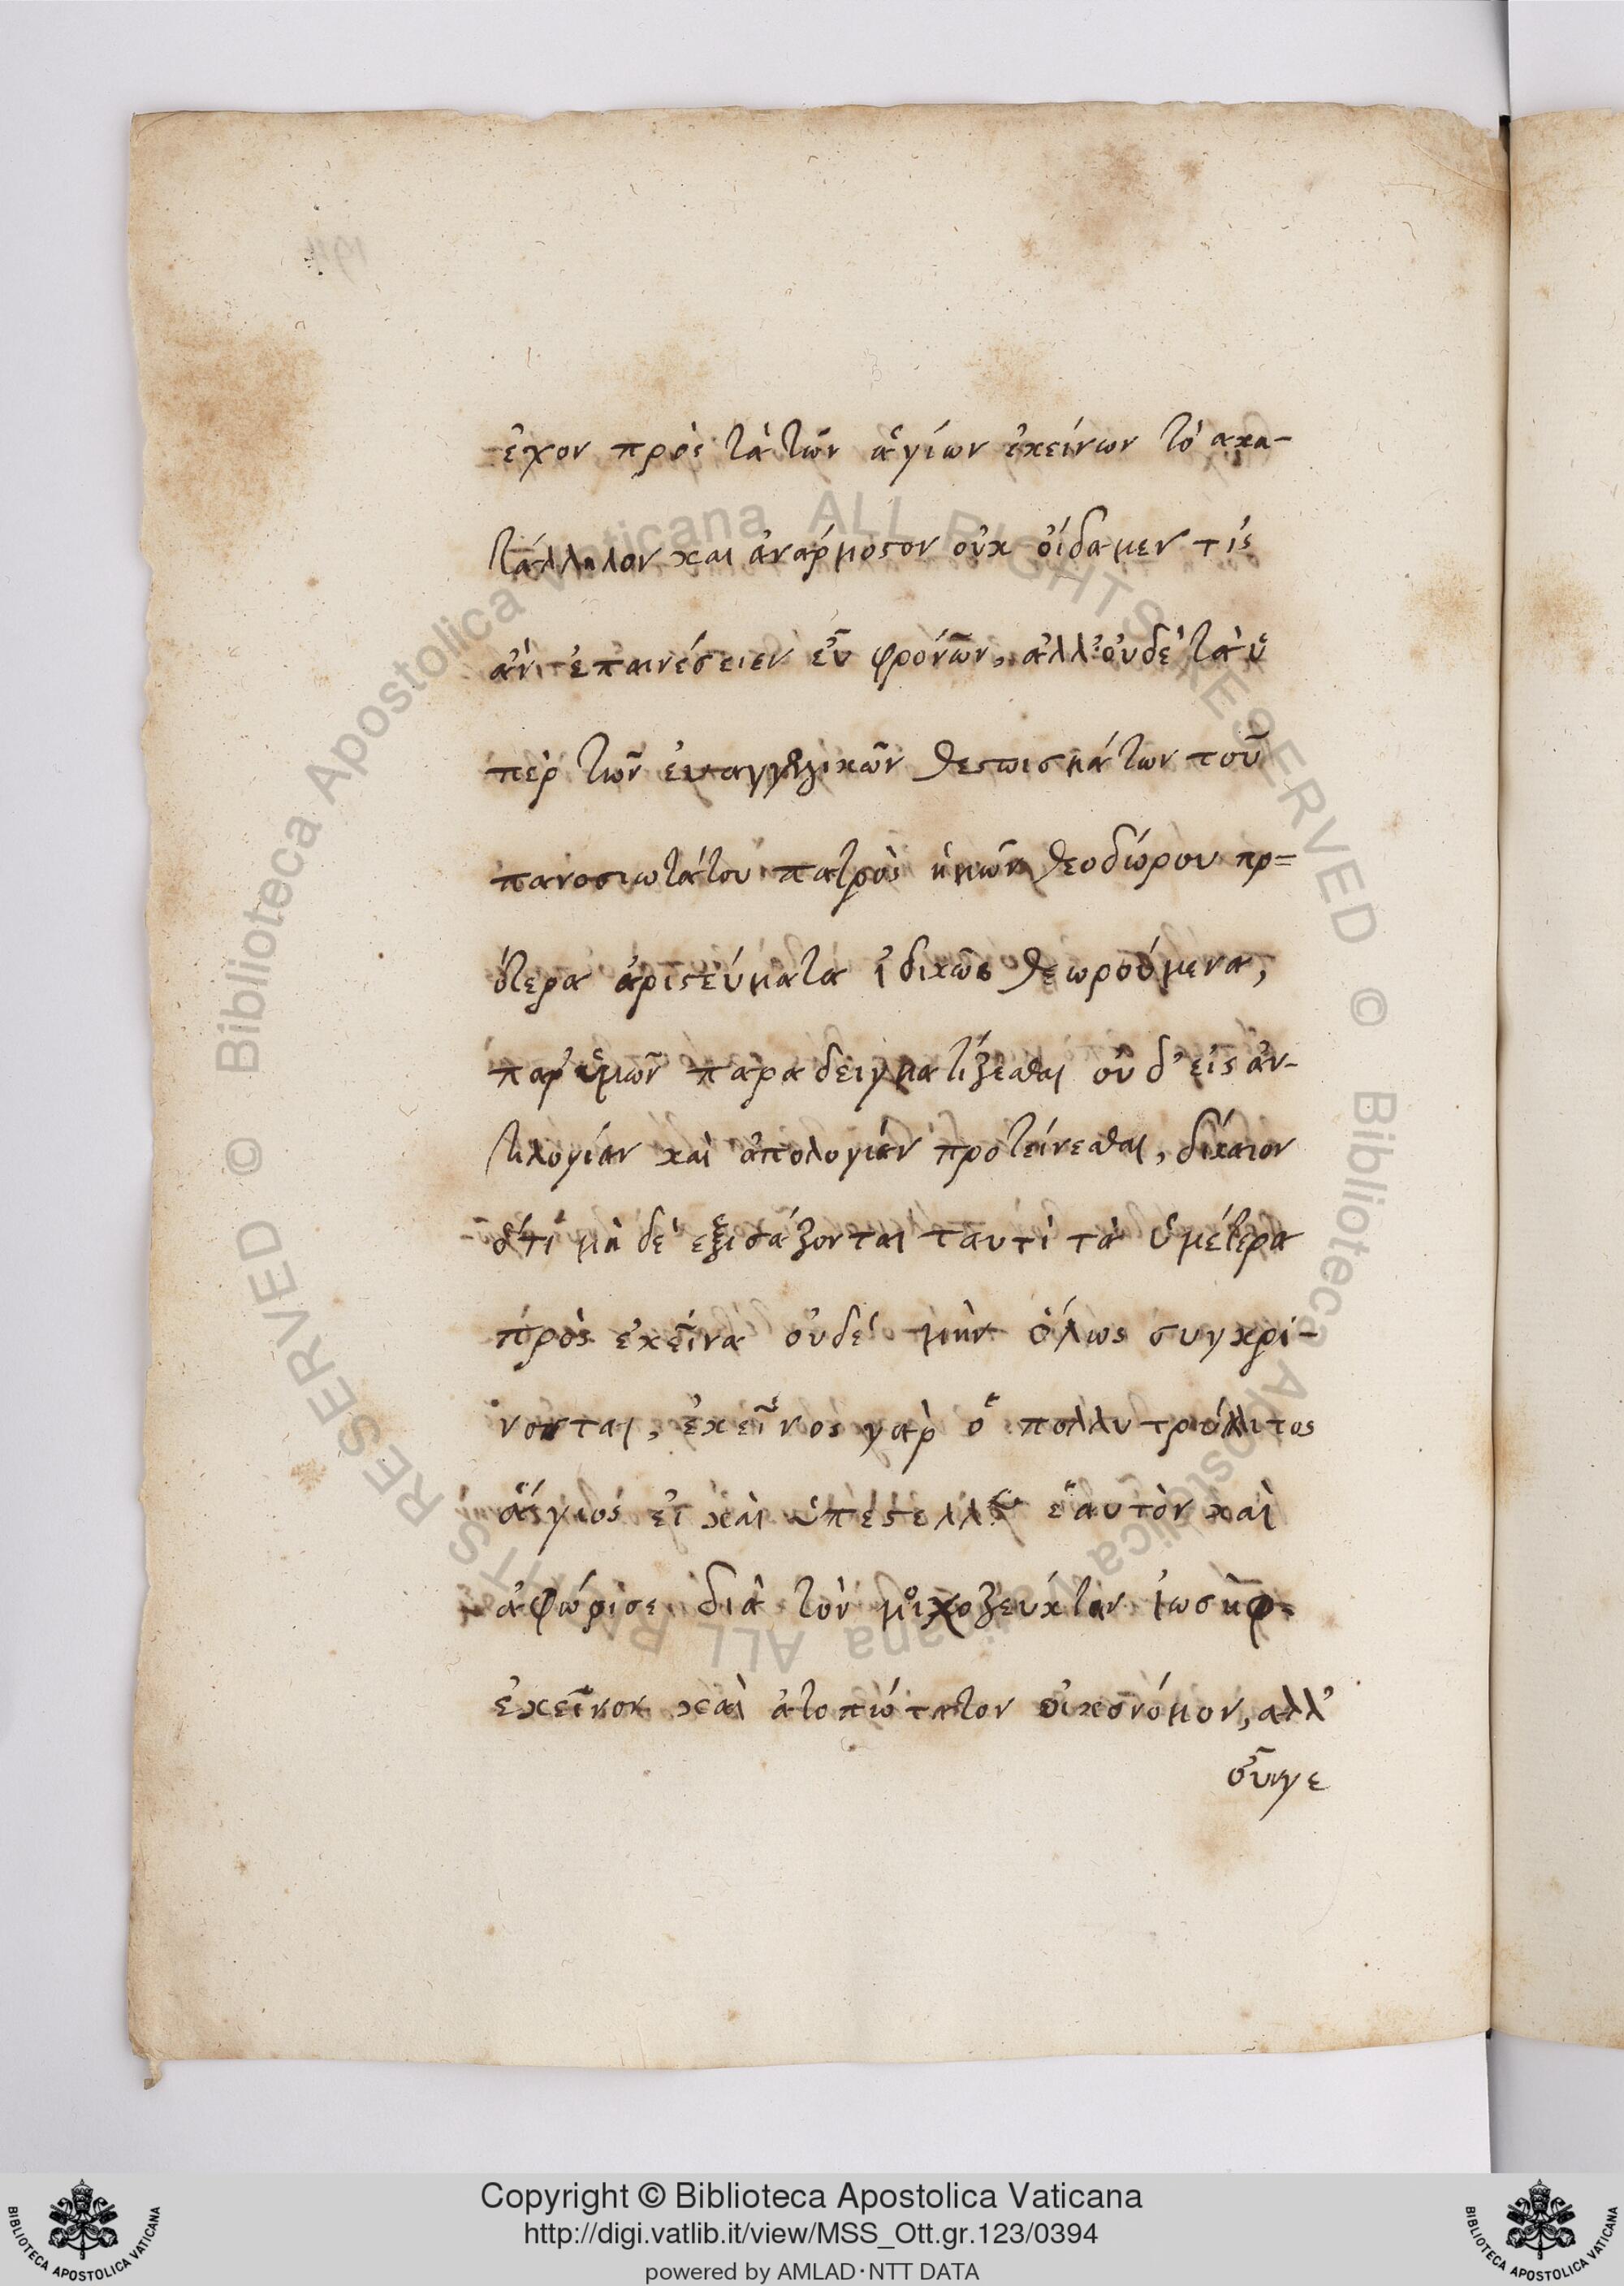 ἐχον πρὸς τὰ τῶν ἁγίων ἐκείνων τὸ ακα-
τάλληλον και ἀναρμοστον οὐκ οἴδαμεν τίς
ἀν ἐπαινέσειεν εὖ φρονῶν, ἀλλ' οὐδὲ τὰ ὑ
πὲρ τῶν ἐυαγγελικῶν θεσπισμάτων τοῦ
πανοσιωτάτου πατρὸς ἡμῶν θεοδώρου πρ=
ότερα ἀριστεύματα ἰδικῶς θεωρούμενα,
παρ' ὑμῶν παραδειγματίζεσθαι οὐδ' εἰς ἀν-
τιλογίαν καὶ ἀπολογίαν προτείνεσθαι, δίκαιον
ότι μὴ δὲ εξισάζονται ταυτὶ τὰ ὑμέτερα
πρὸς ἐκεῖνα οὐδὲ μὴν ὅλως συγκρί-
νονται, ἐκεῖνος γὰρ ὁ πολλυτρόλλιτος
ἅγιος εἰ καὶ ὑπέστελλεν ἑαυτὸν καὶ
ἀφώρισε διὰ τὸν μοιχοζεύκταν ἰωσὴφ
ἐκεῖνον καὶ ἀτοπώτατον οἰκονόμον, αλλ'
οὖν γε
Copyright © Biblioteca Apostolica Vaticana
http://digi.vatlib.it/view/MSS_Ott.gr.123/0394
powered by AMLAD·NTT DATA
BIBLIOTECA APOSTOLICA VATICANA
BIBLIOTECA APOSTOLICA VATICANA
© Biblioteca Apostolica Vaticana ALL RIGHTS RESERVED
© Biblioteca Apostolica Vaticana ALL RIGHTS RESERVED